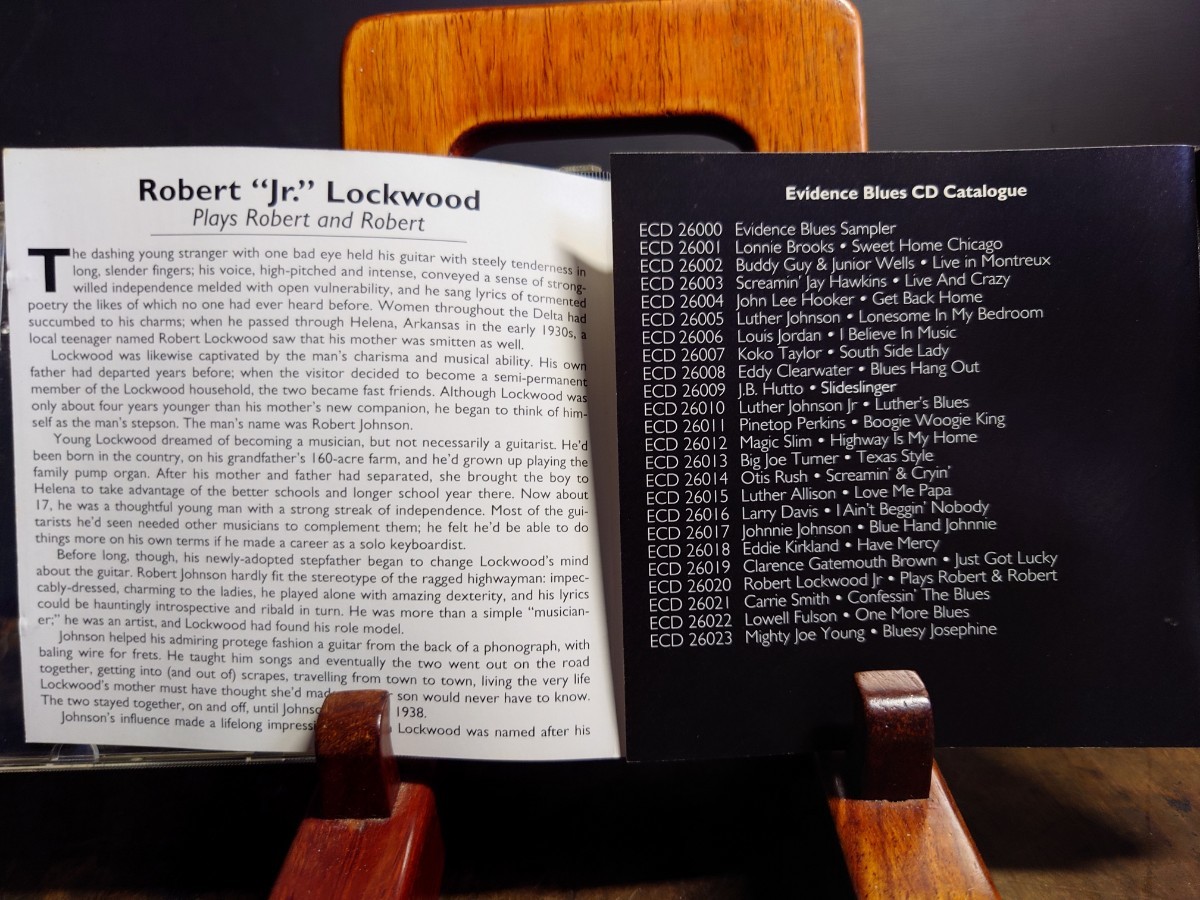 Robert “Jr.” Lockwood
Plays Robert and Robert
The dashing young stranger with one bad eye held his guitar with steely tenderness in
long, slender fingers; his voice, high-pitched and intense, conveyed a sense of strong-
willed independence melded with open vulnerability, and he sang lyrics of tormented
poetry the likes of which no one had ever heard before. Women throughout the Delta had
succumbed to his charms; when he passed through Helena, Arkansas in the early 1930s, a
local teenager named Robert Lockwood saw that his mother was smitten as well.
Lockwood was likewise captivated by the man’s charisma and musical ability. His own
father had departed years before; when the visitor decided to become a semi-permanent
member of the Lockwood household, the two became fast friends. Although Lockwood was
only about four years younger than his mother’s new companion, he began to think of him-
self as the man’s stepson. The man’s name was Robert Johnson.
Young Lockwood dreamed of becoming a musician, but not necessarily a guitarist. He’d
been born in the country, on his grandfather’s 160-acre farm, and he’d grown up playing the
family pump organ. After his mother and father had separated, she brought the boy to
Helena to take advantage of the better schools and longer school year there. Now about
17, he was a thoughtful young man with a strong streak of independence. Most of the gui-
tarists he’d seen needed other musicians to complement them; he felt he’d be able to do
things more on his own terms if he made a career as a solo keyboardist.
Before long, though, his newly-adopted stepfather began to change Lockwood’s mind
about the guitar. Robert Johnson hardly fit the stereotype of the ragged highwayman: impec-
cably-dressed, charming to the ladies, he played alone with amazing dexterity, and his lyrics
could be hauntingly introspective and ribald in turn. He was more than a simple “musician-
er;” he was an artist, and Lockwood had found his role model.
Johnson helped his admiring protege fashion a guitar from the back of a phonograph, with
baling wire for frets. He taught him songs and eventually the two went out on the road
together, getting into (and out of) scrapes, travelling from town to town, living the very life
Lockwood’s mother must have thought she’d son would never have to know.
The two stayed together, on and off, until 1938.
Johnson’s influence made a lifelong Lockwood was named after his
Evidence Blues CD Catalogue
ECD 26000 Evidence Blues Sampler
ECD 26001 Lonnie Brooks • Sweet Home Chicago
ECD 26002 Buddy Guy & Junior Wells • Live in Montreux
ECD 26003 Screamin’ Jay Hawkins • Live And Crazy
ECD 26004 John Lee Hooker • Get Back Home
ECD 26005 Luther Johnson • Lonesome In My Bedroom
ECD 26006 Louis Jordan • I Believe In Music
ECD 26007 Koko Taylor • South Side Lady
ECD 26008 Eddy Clearwater • Blues Hang Out
ECD 26009 J.B. Hutto • Slideslinger
ECD 26010 Luther Johnson Jr • Luther’s Blues
ECD 26011 Pinetop Perkins • Boogie Woogie King
ECD 26012 Magic Slim • Highway Is My Home
ECD 26013 Big Joe Turner • Texas Style
ECD 26014 Otis Rush • Screamin’ & Cryin’
ECD 26015 Luther Allison • Love Me Papa
ECD 26016 Larry Davis • I Ain’t Beggin’ Nobody
ECD 26017 Johnnie Johnson • Blue Hand Johnnie
ECD 26018 Eddie Kirkland • Have Mercy
ECD 26019 Clarence Gatemouth Brown • Just Got Lucky
ECD 26020 Robert Lockwood Jr • Plays Robert & Robert
ECD 26021 Carrie Smith • Confessin’ The Blues
ECD 26022 Lowell Fulson • One More Blues
ECD 26023 Mighty Joe Young • Bluesy Josephine